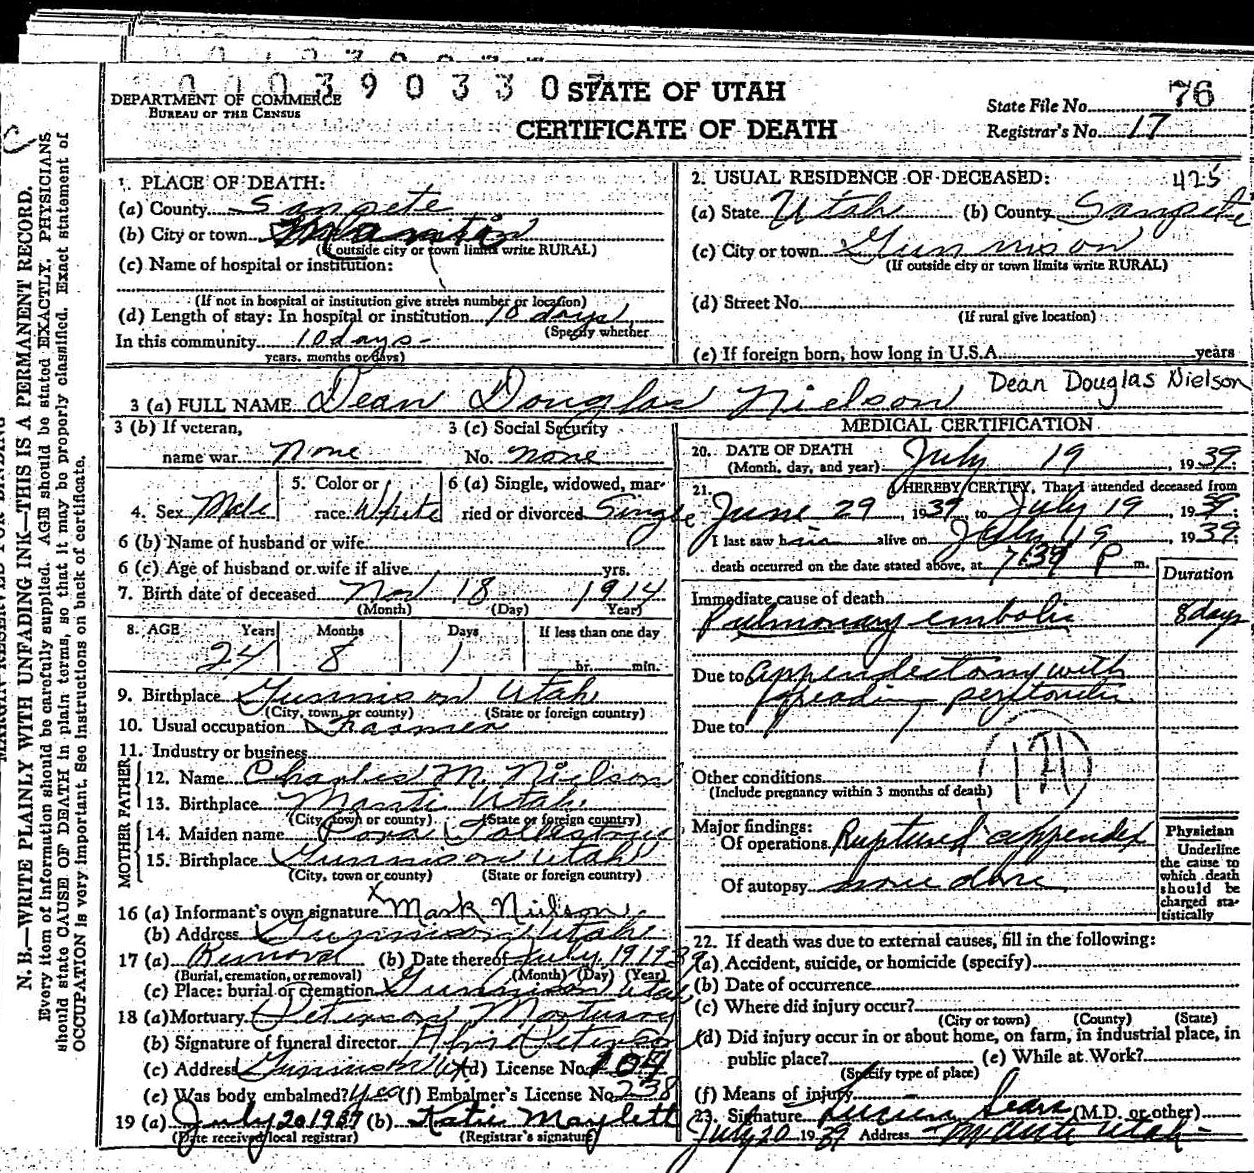 0 0 0 3 9 0 3 3 0
STATE OF UTAH
CERTIFICATE OF DEATH
DEPARTMENT OF COMMERCE
BUREAU OF THE CENSUS
State File No. 76
Registrar's No. 17
1. PLACE OF DEATH:
(a) County Sanpete
(b) City or town
(If outside city or town limits write RURAL)
(c) Name of hospital or institution:
(If not in hospital or institution give street number or location)
(d) Length of stay: In hospital or institution 10 days
(Specify whether
In this community 10 days
years, months or days)
2. USUAL RESIDENCE OF DECEASED: 425
(a) State Utah (b) County Sanpete
(c) City or town Gunnison
(If outside city or town limits write RURAL)
(d) Street No.
(If rural give location)
(e) If foreign born, how long in U.S.A. years
3 (a) FULL NAME Dean Douglas Nielson Dean Douglas Nielson
3 (b) If veteran,
name war None
3 (c) Social Security
No. none
4. Sex Male
5. Color or
race White
6 (a) Single, widowed, mar-
ried or divorced Single
6 (b) Name of husband or wife
6 (c) Age of husband or wife if alive yrs.
7. Birth date of deceased Nov 18 1914
(Month) (Day) Year)
8. AGE Years Months Days If less than one day
24 8 1 hr. min.
9. Birthplace Gunnison Utah
(City, town, or county) (State or foreign country)
10. Usual occupation
11. Industry or business
FATHER
12. Name Charles M. Nielson
13. Birthplace Manti Utah
(City town or county) (State or foreign country)
MOTHER
14. Maiden name
15. Birthplace Gunnison Utah
(City, town or county) (State or foreign country)
16 (a) Informant's own signature x Mark Nielson
(b) Address Gunnison Utah
17 (a) Removal (b) Date thereof July 19 1939
(Burial, cremation, or removal) (Month) (Day) (Year)
(c) Place: burial or cremation Gunnison Utah
18 (a) Mortuary Peterson Mortuary
(b) Signature of funeral director Peterson
(c) Address Gunnison Ut (d) License No. 104
(e) Was body embalmed? Yes (f) Embalmer's License No. 238
19 (a) July 20 1939 (b) Katie Maylett
(Date received local registrar) (Registrar's signature)
MEDICAL CERTIFICATION
20. DATE OF DEATH
(Month, day, and year) July 19, 1939;
21. I HEREBY CERTIFY, That I attended deceased from
June 29, 1939 to July 19, 1939;
I last saw him alive on July 19, 1939;
death occurred on the date stated above, at 7:39 P m.
Duration
Immediate cause of death
Pulmonary emboli 8 days
Due to appendectomy with
spreading peritonitis
Due to
Other conditions
(Include pregnancy within 3 months of death)
121
Major findings:
Of operations Ruptured appendix
Of autopsy none done
Physician
Underline
the cause to
which death
should be
charged sta-
tistically
22. If death was due to external causes, fill in the following:
(a) Accident, suicide, or homicide (specify)
(b) Date of occurrence
(c) Where did injury occur?
(City or town) (County) (State)
(d) Did injury occur in or about home, on farm, in industrial place, in
public place? (e) While at Work?
(Specify type of place)
(f) Means of injury
23. Signature Lucien Sears (M.D. or other)
July 20 1939 Address Manti Utah
N. B.—WRITE PLAINLY WITH UNFADING INK—THIS IS A PERMANENT RECORD.
Every item of information should be carefully supplied. AGE should be stated EXACTLY. PHYSICIANS
should state CAUSE OF DEATH in plain terms, so that it may be properly classified. Exact statement of
OCCUPATION is very important. See instructions on back of certificate.